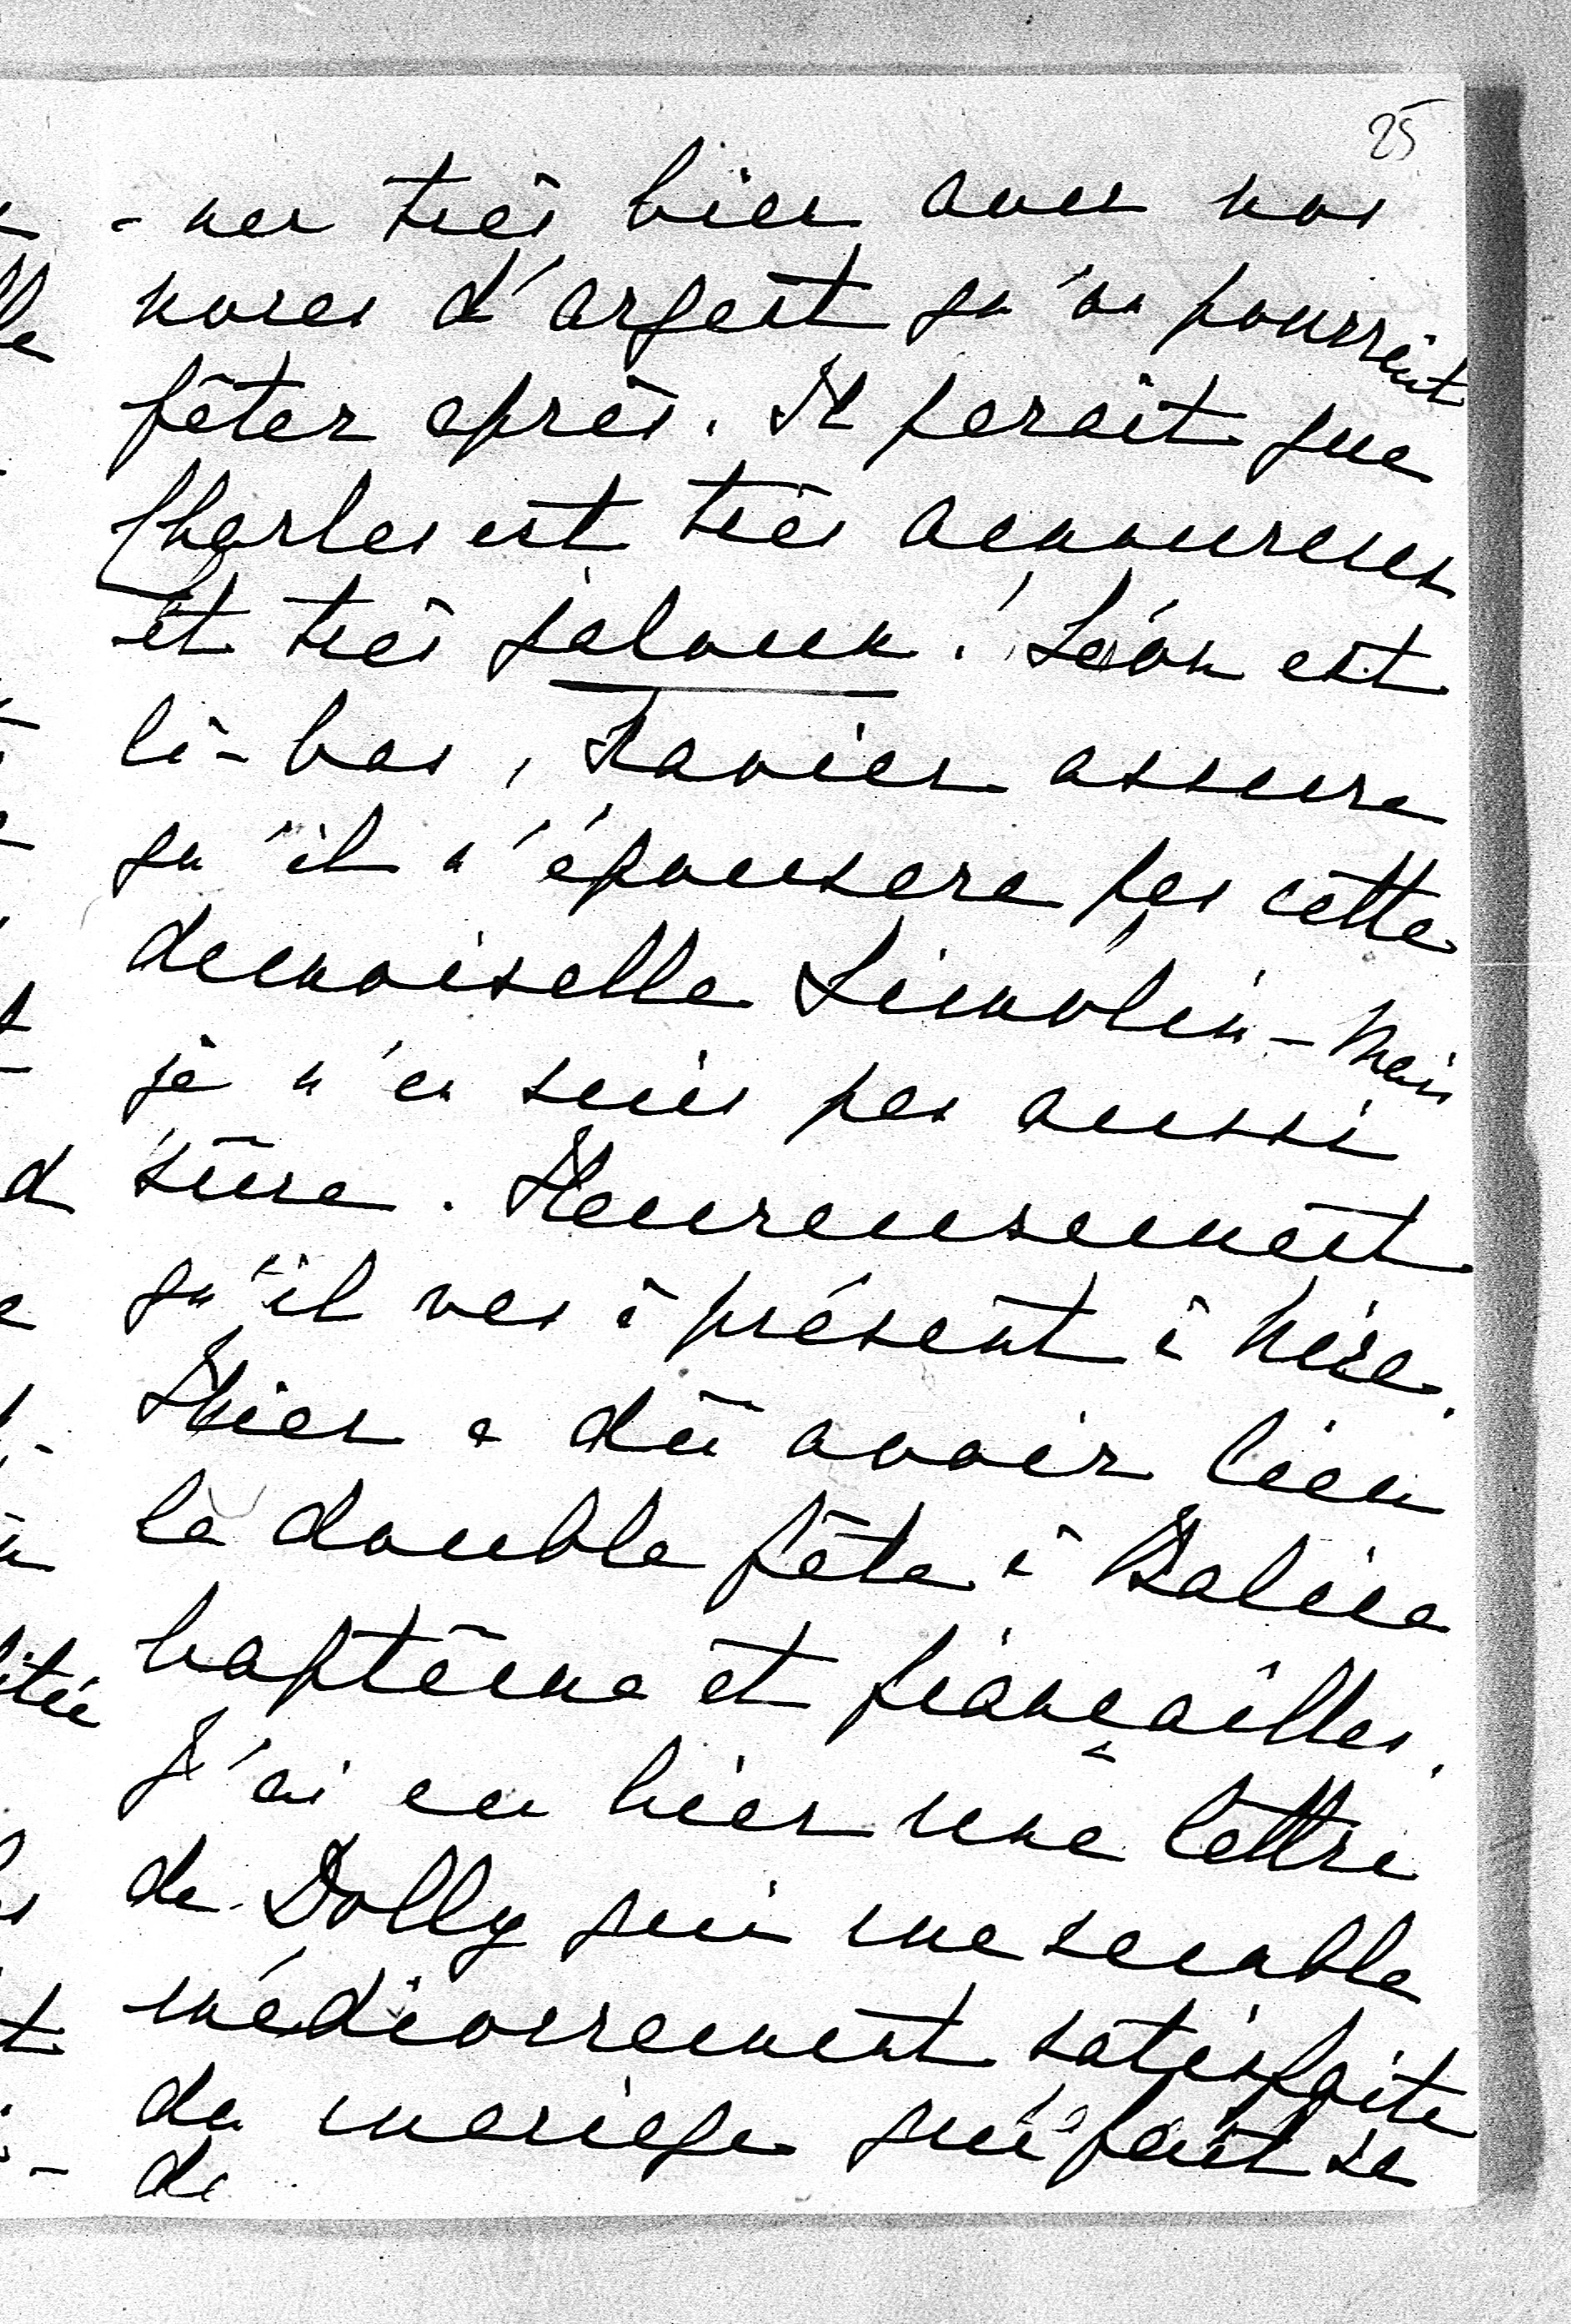 25
-ner très bien avec nos
noces d'argent qu'on pourrait
fêter après. Il parait que
Charles est très amoureux
et très jaloux! Léon est
là-bas, Xavier assure
qu'il n'épousera pas cette
demoiselle - Mais
je n'en suis pas aussi
sûre. Heureusement
qu'il va à présent à
Hier a dû avoir lieu
la double fête à Balice
baptême et fiançailles.
J'ai eu hier une lettre
de Dolly qui me semble
médiocrement satisfaite
du mariage qui fait sa
de